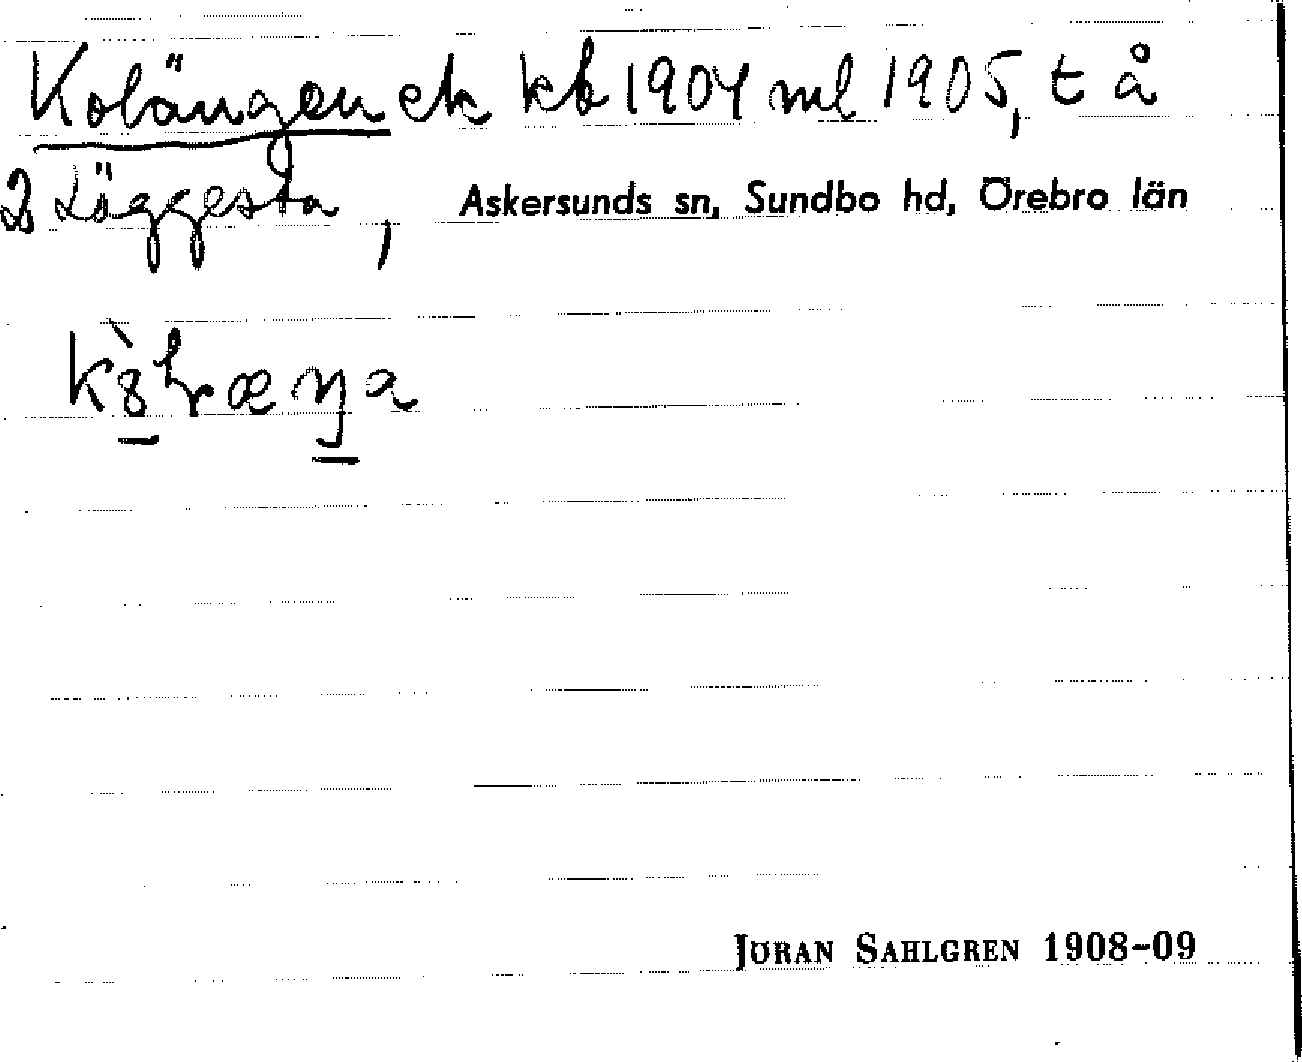 Kolängen ek kb 1904 ml 1905, t å
2 Läggesta, Askersunds sn, Sundbo hd, Örebro län
JÖRAN SAHLGREN 1908-09